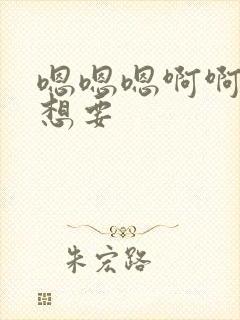 嗯嗯嗯啊啊
想要
朱宏路